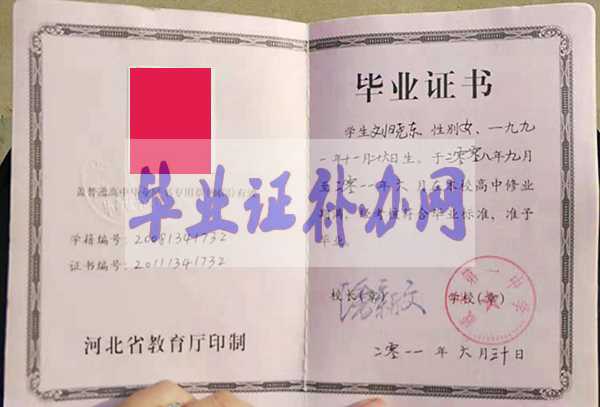 盖普通高中毕业 专用章 有效
学籍编号: 20081341732
证书编号: 20111341732
河北省教育厅印制
毕业证书
学生刘晓东, 性别女、一九九
一年十一月二十六日生, 于二零零八年九月
至二零一一年六月在本校高中修业
期满, 符合毕业标准, 准予
毕业
校长(章) 学校(章)
第一中学
二零一一年六月三十日
毕业证补办网